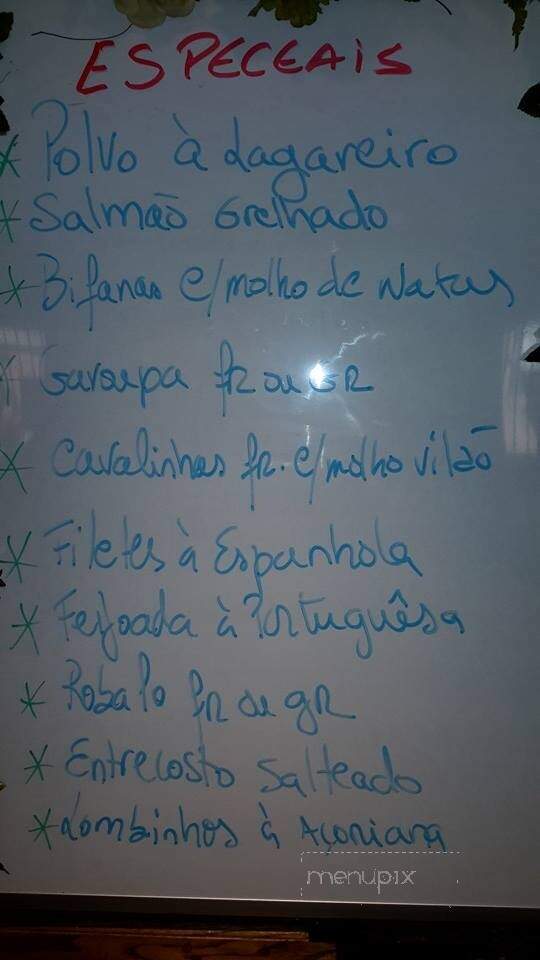 ESPECEAIS
* Polvo à Lagareiro
* Salmão Grelhado
* Bifanas c/molho de Natas
* Garoupa fR ou GR
* Cavalinhas fr. c/molho vilão
* Filetes à Espanhola
* Feijoada à Portuguêsa
* Robalo fR ou gR
* Entrecosto Salteado
* Lombinhos à Açoriana
menupix